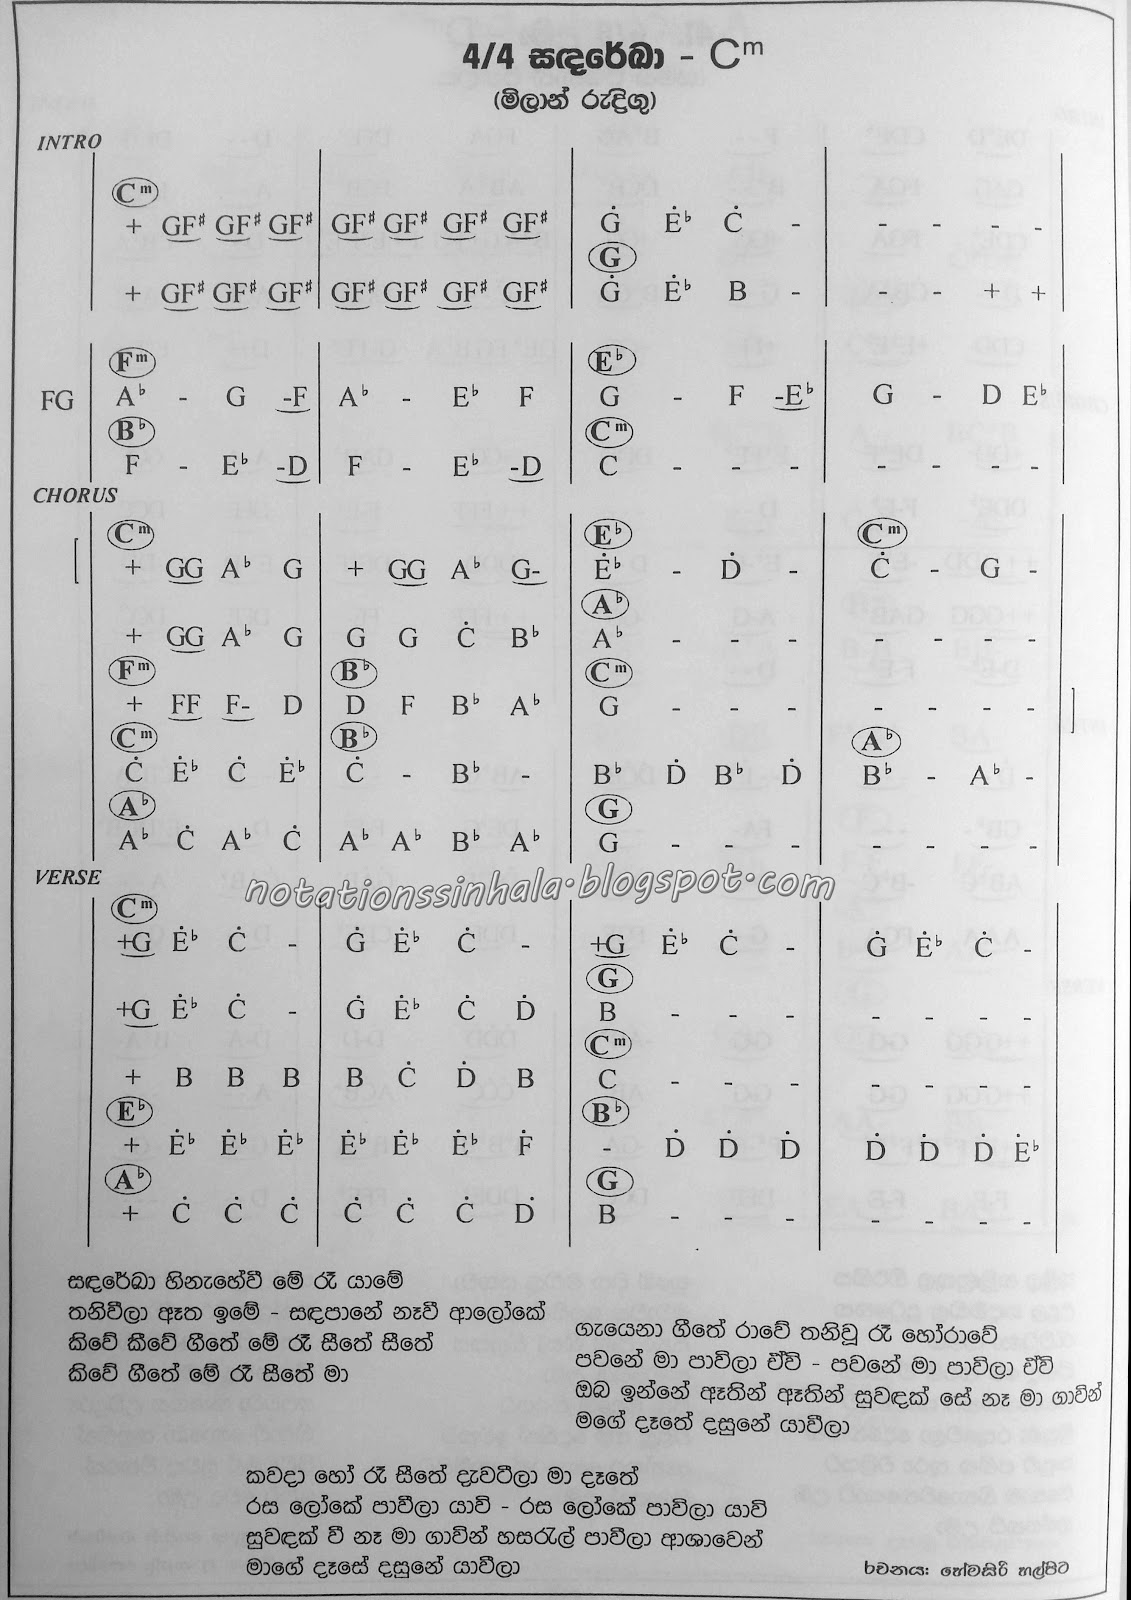 4/4 සඳරේඛා - Cm
(මිලාන් රුද්‍රිගු)
INTRO
Cm
+ GF♯ GF♯ GF♯ GF♯ GF♯ GF♯ GF♯ Ġ Ė♭ Ċ - - - - -
G
+ GF♯ GF♯ GF♯ GF♯ GF♯ GF♯ GF♯ Ġ Ė♭ B - - - + +
Fm E♭
FG A♭ - G -F A♭ - E♭ F G - F -E♭ G - D E♭
B♭ Cm
F - E♭ -D F - E♭ -D C - - - - - - -
CHORUS
Cm E♭ Cm
[ + GG A♭ G + GG A♭ G- Ė♭ - Ḋ - Ċ - G -
A♭
+ GG A♭ G G G Ċ B♭ A♭ - - - - - - -
Fm B♭ Cm
+ FF F- D D F B♭ A♭ G - - - - - - - ]
Cm B♭ A♭
Ċ Ė♭ Ċ Ė♭ Ċ - B♭ - B♭ Ḋ B♭ Ḋ B♭ - A♭ -
A♭ G
A♭ Ċ A♭ Ċ A♭ A♭ B♭ A♭ G - - - - - - -
VERSE
notationssinhala.blogspot.com
Cm
+G Ė♭ Ċ - Ġ Ė♭ Ċ - +G Ė♭ Ċ - Ġ Ė♭ Ċ -
G
+G Ė♭ Ċ - Ġ Ė♭ Ċ Ḋ B - - - - - - -
Cm
+ B B B B Ċ Ḋ B C - - - - - - -
E♭ B♭
+ Ė♭ Ė♭ Ė♭ Ė♭ Ė♭ Ė♭ Ḟ - Ḋ Ḋ Ḋ Ḋ Ḋ Ḋ Ė♭
A♭ G
+ Ċ Ċ Ċ Ċ Ċ Ċ Ḋ B - - - - - - -
සඳරේඛා හිනැහේවී මේ රෑ යාමේ
තනිවීලා ඈත ඉමේ - සඳපානේ නෑවී ආලෝකේ
කිවේ කීවේ ගීතේ මේ රෑ සීතේ සීතේ
කිවේ ගීතේ මේ රෑ සීතේ මා
ගැයෙනා ගීතේ රාවේ තනිවූ රෑ හෝරාවේ
පවනේ මා පාවිලා ඒවි - පවනේ මා පාවිලා ඒවි
ඔබ ඉන්නේ ඈතින් ඈතින් සුවඳක් සේ නෑ මා ගාවින්
මගේ දෑතේ දසුනේ යාවීලා
කවදා හෝ රෑ සීතේ දැවටීලා මා දෑතේ
රස ලෝකේ පාවීලා යාවි - රස ලෝකේ පාවිලා යාවි
සුවඳක් වී නෑ මා ගාවින් හසරැල් පාවීලා ආශාවෙන්
මාගේ දෑසේ දසුනේ යාවීලා
රචනය: හේමසිරි හල්පිට